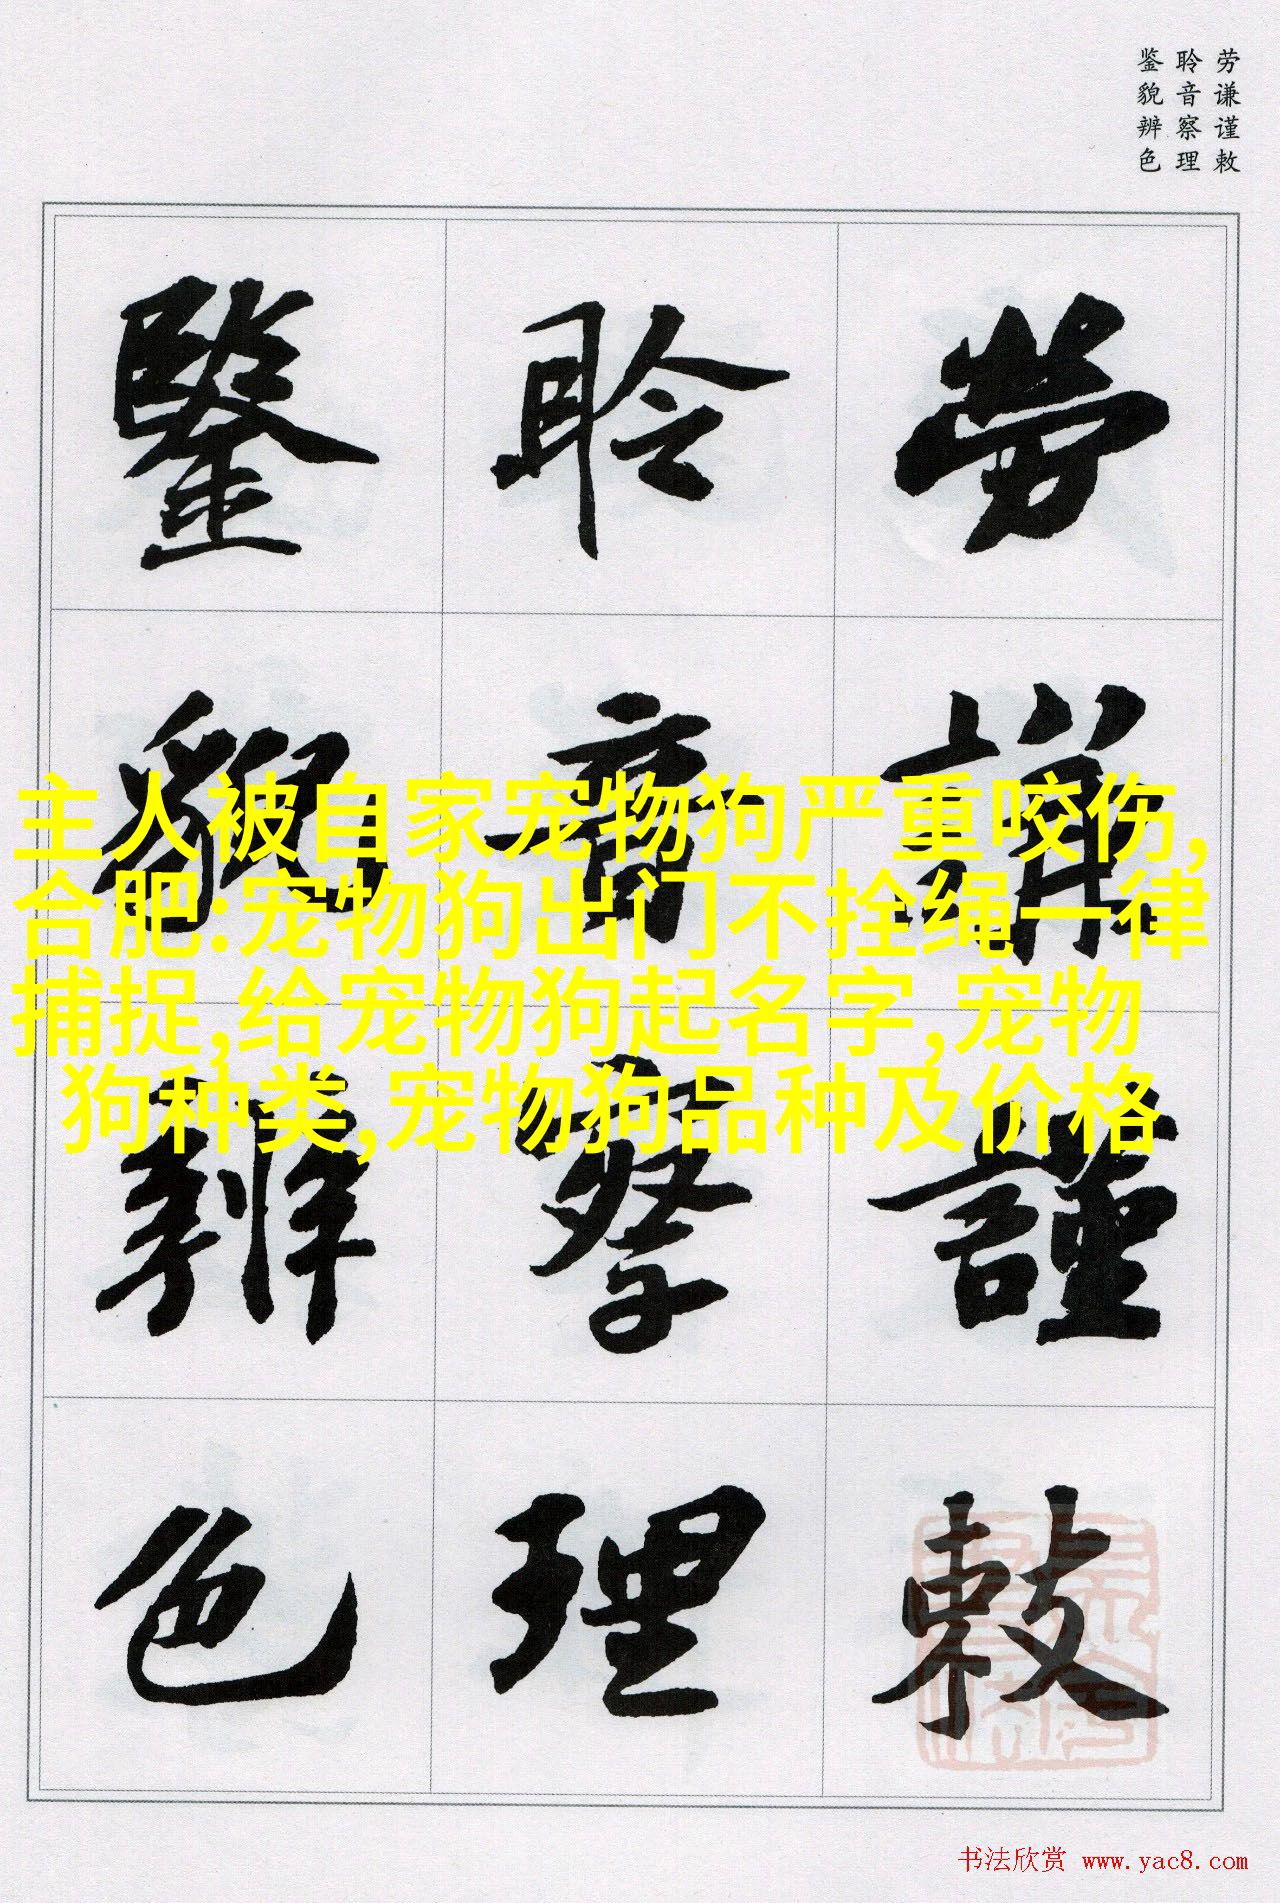 劳谦谨敕
聆音察理
鉴貌辨色
勞謙謹敕
聆音察理
鑒貌辨色
主人被自家宠物狗严重咬伤,
合肥:宠物狗出门不拴绳一律
捕捉,给宠物狗起名字,宠物
狗种类,宠物狗品种及价格
书法欣赏 www.yac8.com